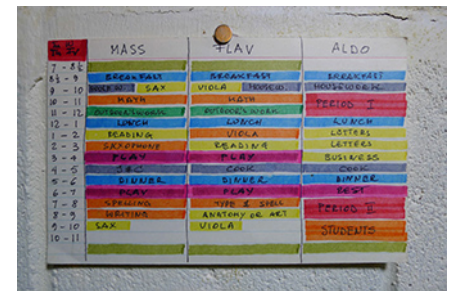 MASS FLAV ALDO
7 - 8½
8½ - 9 BREAKFAST BREAKFAST BREAKFAST
9 - 10 HOUSEW. SAX VIOLA HOUSEW. HOUSEWORK
10 - 11 MATH MATH PERIOD I
11 - 12 OUTDOORS WORK OUTDOOR'S WORK
12 - 1 LUNCH LUNCH LUNCH
1 - 2 READING VIOLA LETTERS
2 - 3 SAXOPHONE READING LETTERS
3 - 4 PLAY PLAY BUSINESS
4 - 5 COOK COOK
5 - 6 DINNER DINNER DINNER
6 - 7 PLAY PLAY REST
7 - 8 SPELLING TYPE & SPELL PERIOD II
8 - 9 WRITING ANATOMY OR ART
9 - 10 SAX VIOLA STUDENTS
10 - 11